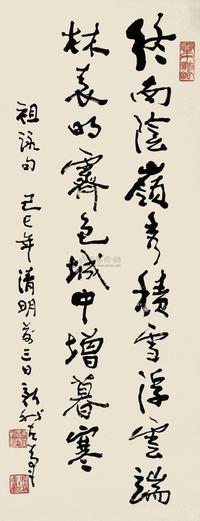 终南阴岭秀積雪浮雲端
林表明霽色城中增暮寒
祖詠句 己巳年清明前三日